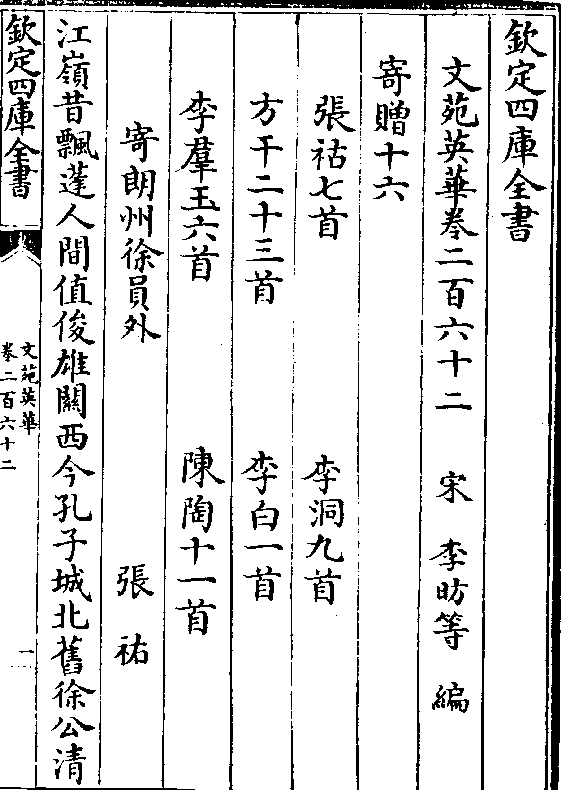 欽定四庫全書
文苑英華卷二百六十二　宋　李昉等　編
寄贈十六
張祜七首　李洞九首
方干二十三首　李白一首
李羣玉六首　陳陶十一首
寄朗州徐員外　張祐
江嶺昔飄蓬人間值俊雄關西今孔子城北舊徐公清
欽定四庫全書
文苑英華
卷二百六十二
一